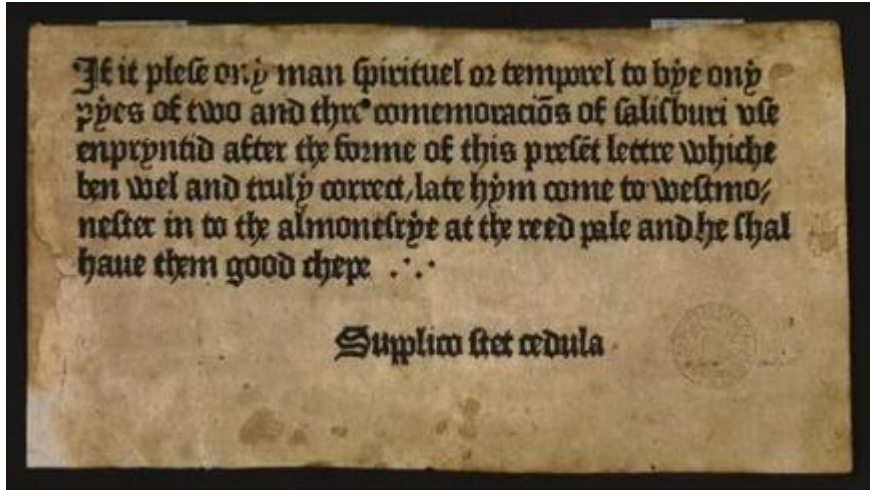 If it plese ony man spirituel or temporel to bye ony
pyes of two and thre comemoraciõs of salisburi vse
enpryntid after the forme of this presẽt lettre whiche
ben wel and truly correct, late hym come to westmo/
nester in to the almonesrye at the reed pale and he shal
haue them good chepe .·.·
Supplico stet cedula